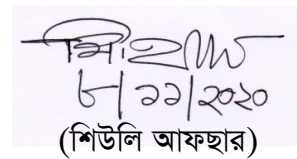 ৮/১১/২০২০
(শিউলি আফছার)